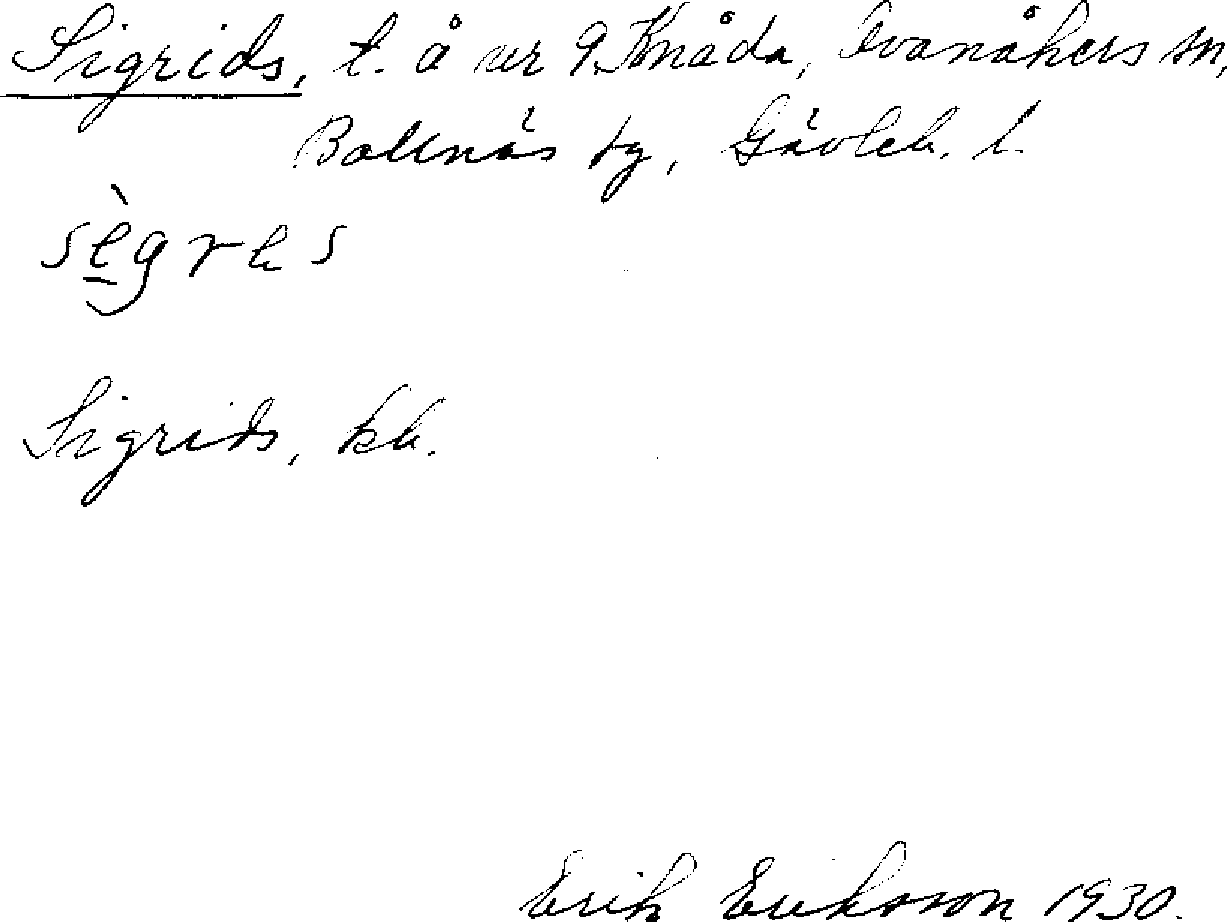 Sigrids, t. å nr 9 Knåda, Ovanåkers sn,
Bollnäs tg, Gävleb. l.
sègres
Sigrids, kb.
Erik Eriksson 1930.